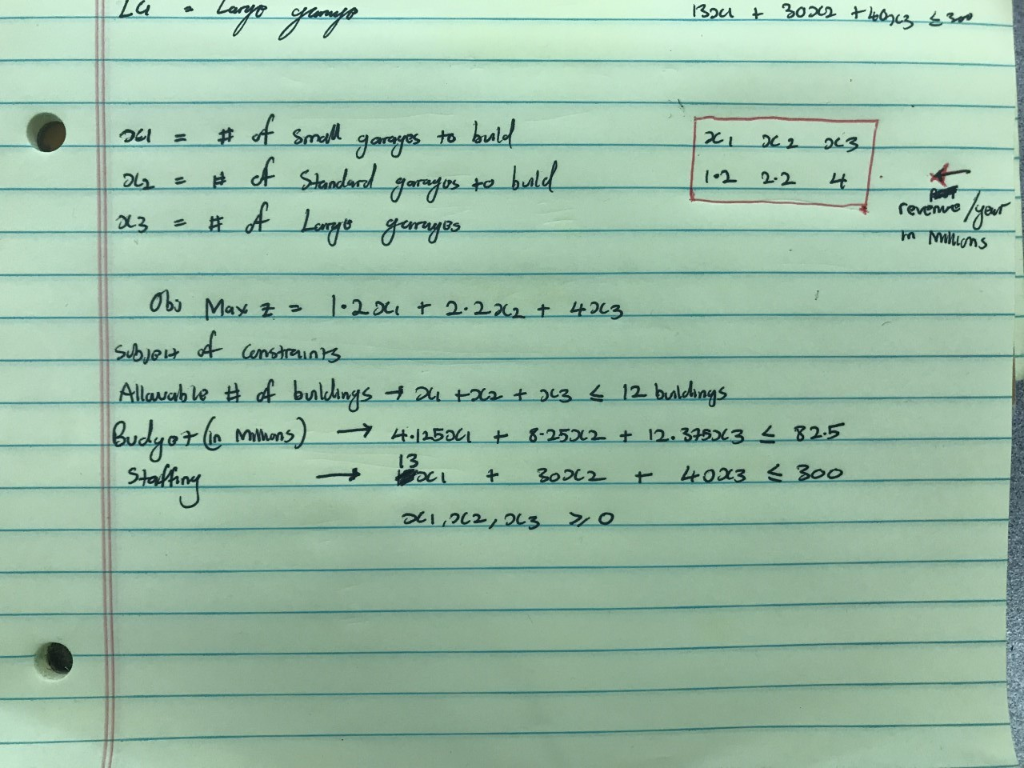 LG = Large garage
13x1 + 30x2 + 40x3 ≤ 300
x1 = # of small garages to build
x2 = # of Standard garages to build
x3 = # of Large garages
x1 x2 x3
1.2 2.2 4
revenue/year
in Millions
Obj Max z = 1.2x1 + 2.2x2 + 4x3
Subject of constraints
Allowable # of buildings → x1 + x2 + x3 ≤ 12 buildings
Budget (in Millions) → 4.125x1 + 8.25x2 + 12.375x3 ≤ 82.5
Staffing → 13x1 + 30x2 + 40x3 ≤ 300
x1, x2, x3 ≥ 0